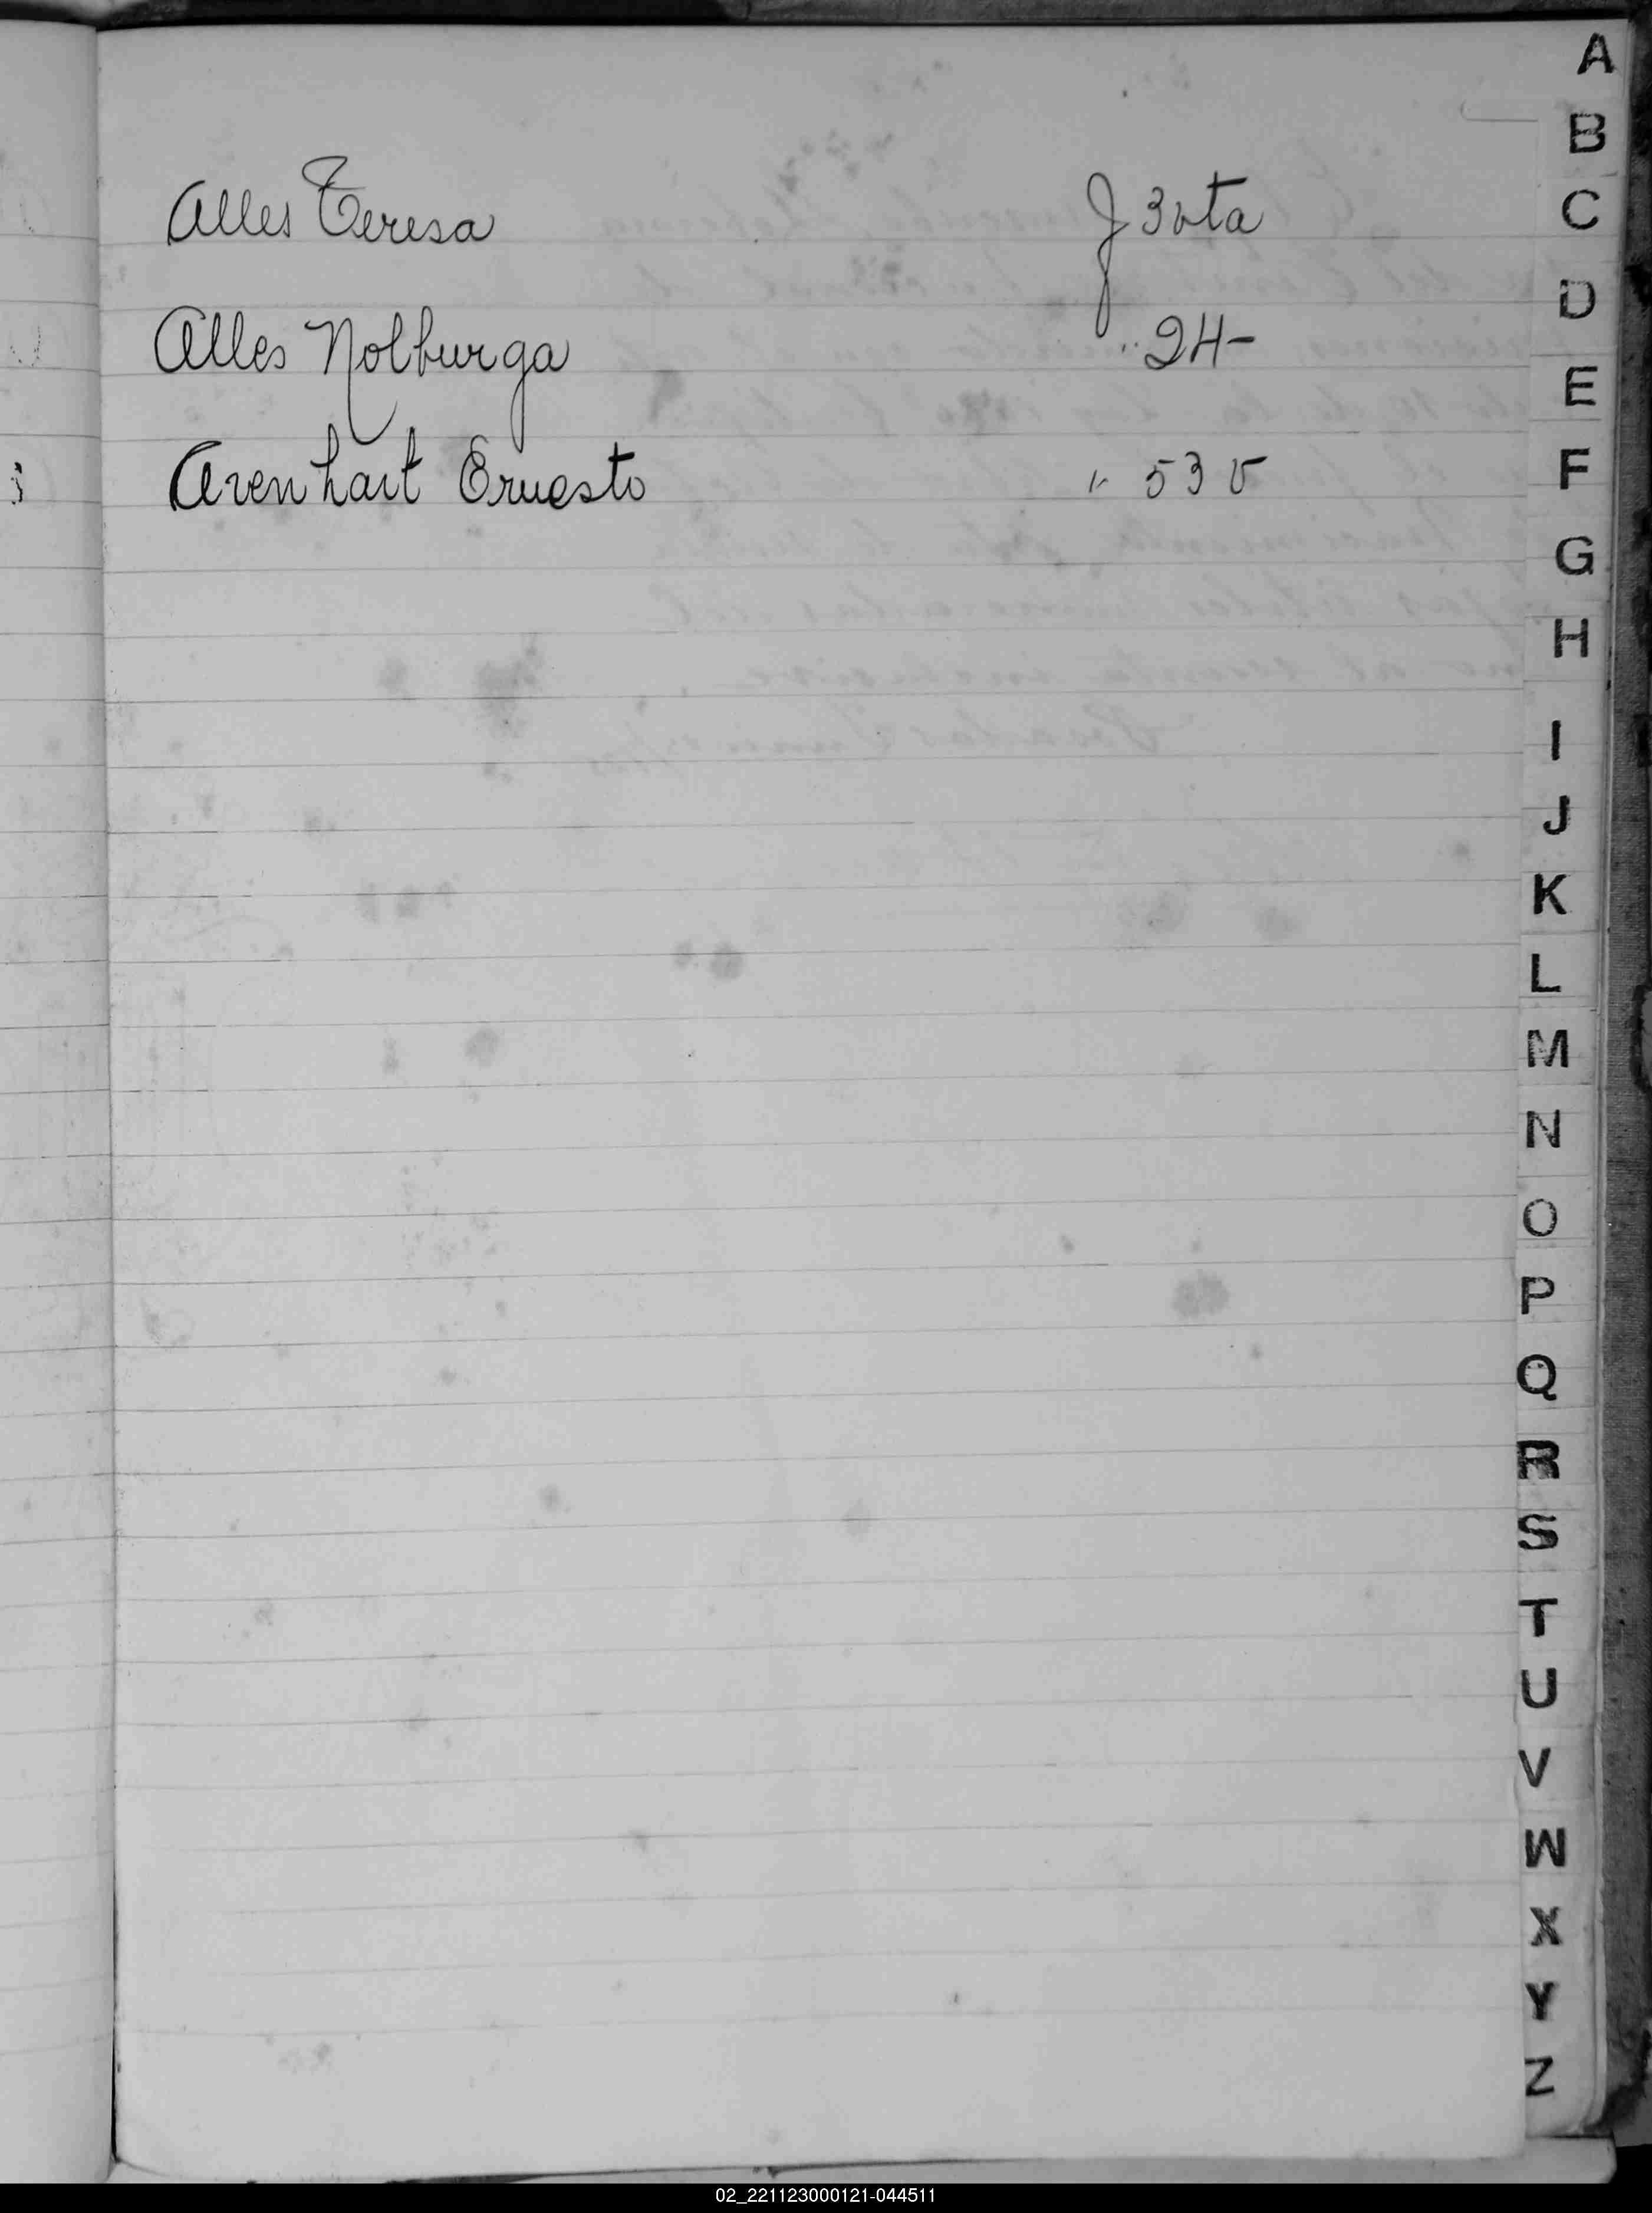 Alles Teresa F 3 vta
Alles Nolburga " 24-
Arenhart Ernesto " 53 v
A
B
C
D
E
F
G
H
I
J
K
L
M
N
O
P
Q
R
S
T
U
V
W
X
Y
Z
02_221123000121-044511